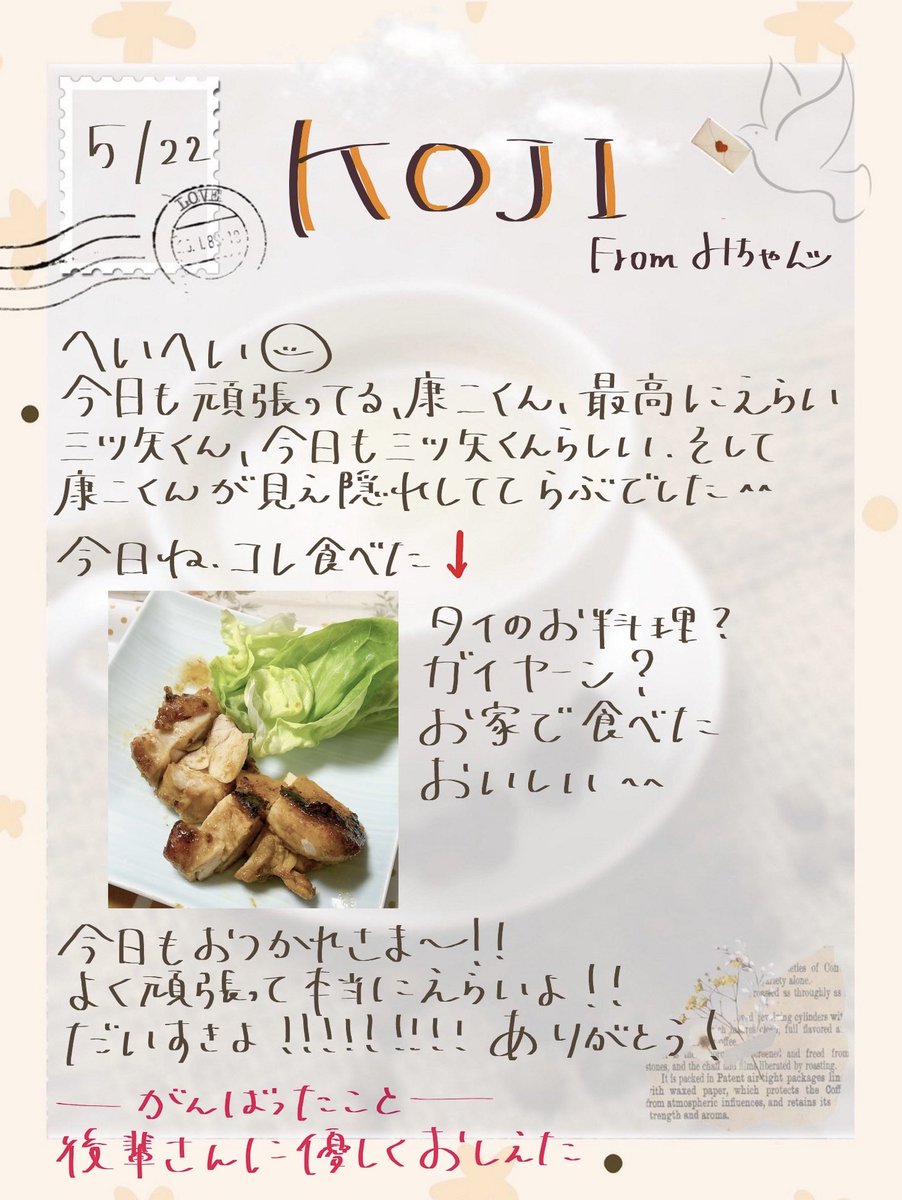 5/22
KOJI
From みちゃん
LOVE
へいへい
今日も頑張ってる、康二くん、最高にえらい
三ツ矢くん、今日も三ツ矢くんらしい.そして
康二くんが見え隠れしててらぶでした^^
今日ね.コレ食べた↓
タイのお料理?
ガイヤーン?
お家で食べた
おいしい^^
今日もおつかれさま〜!!
よく頑張って本当にえらいよ!!
だいすきよ!!!!!!!!! ありがとう!
eties of Con
ariety alone.
roasted as throughly as
revolving cylinders wit
full flavored a
coffee.
screened and freed from
stones, and the chaff and films liberated by roasting.
It is packed in Patent air-tight packages lin
ith waxed paper, which protects the Coff
from atmospheric influences, and retains its
trength and aroma.
がんばったこと
後輩さんに優しくおしえた